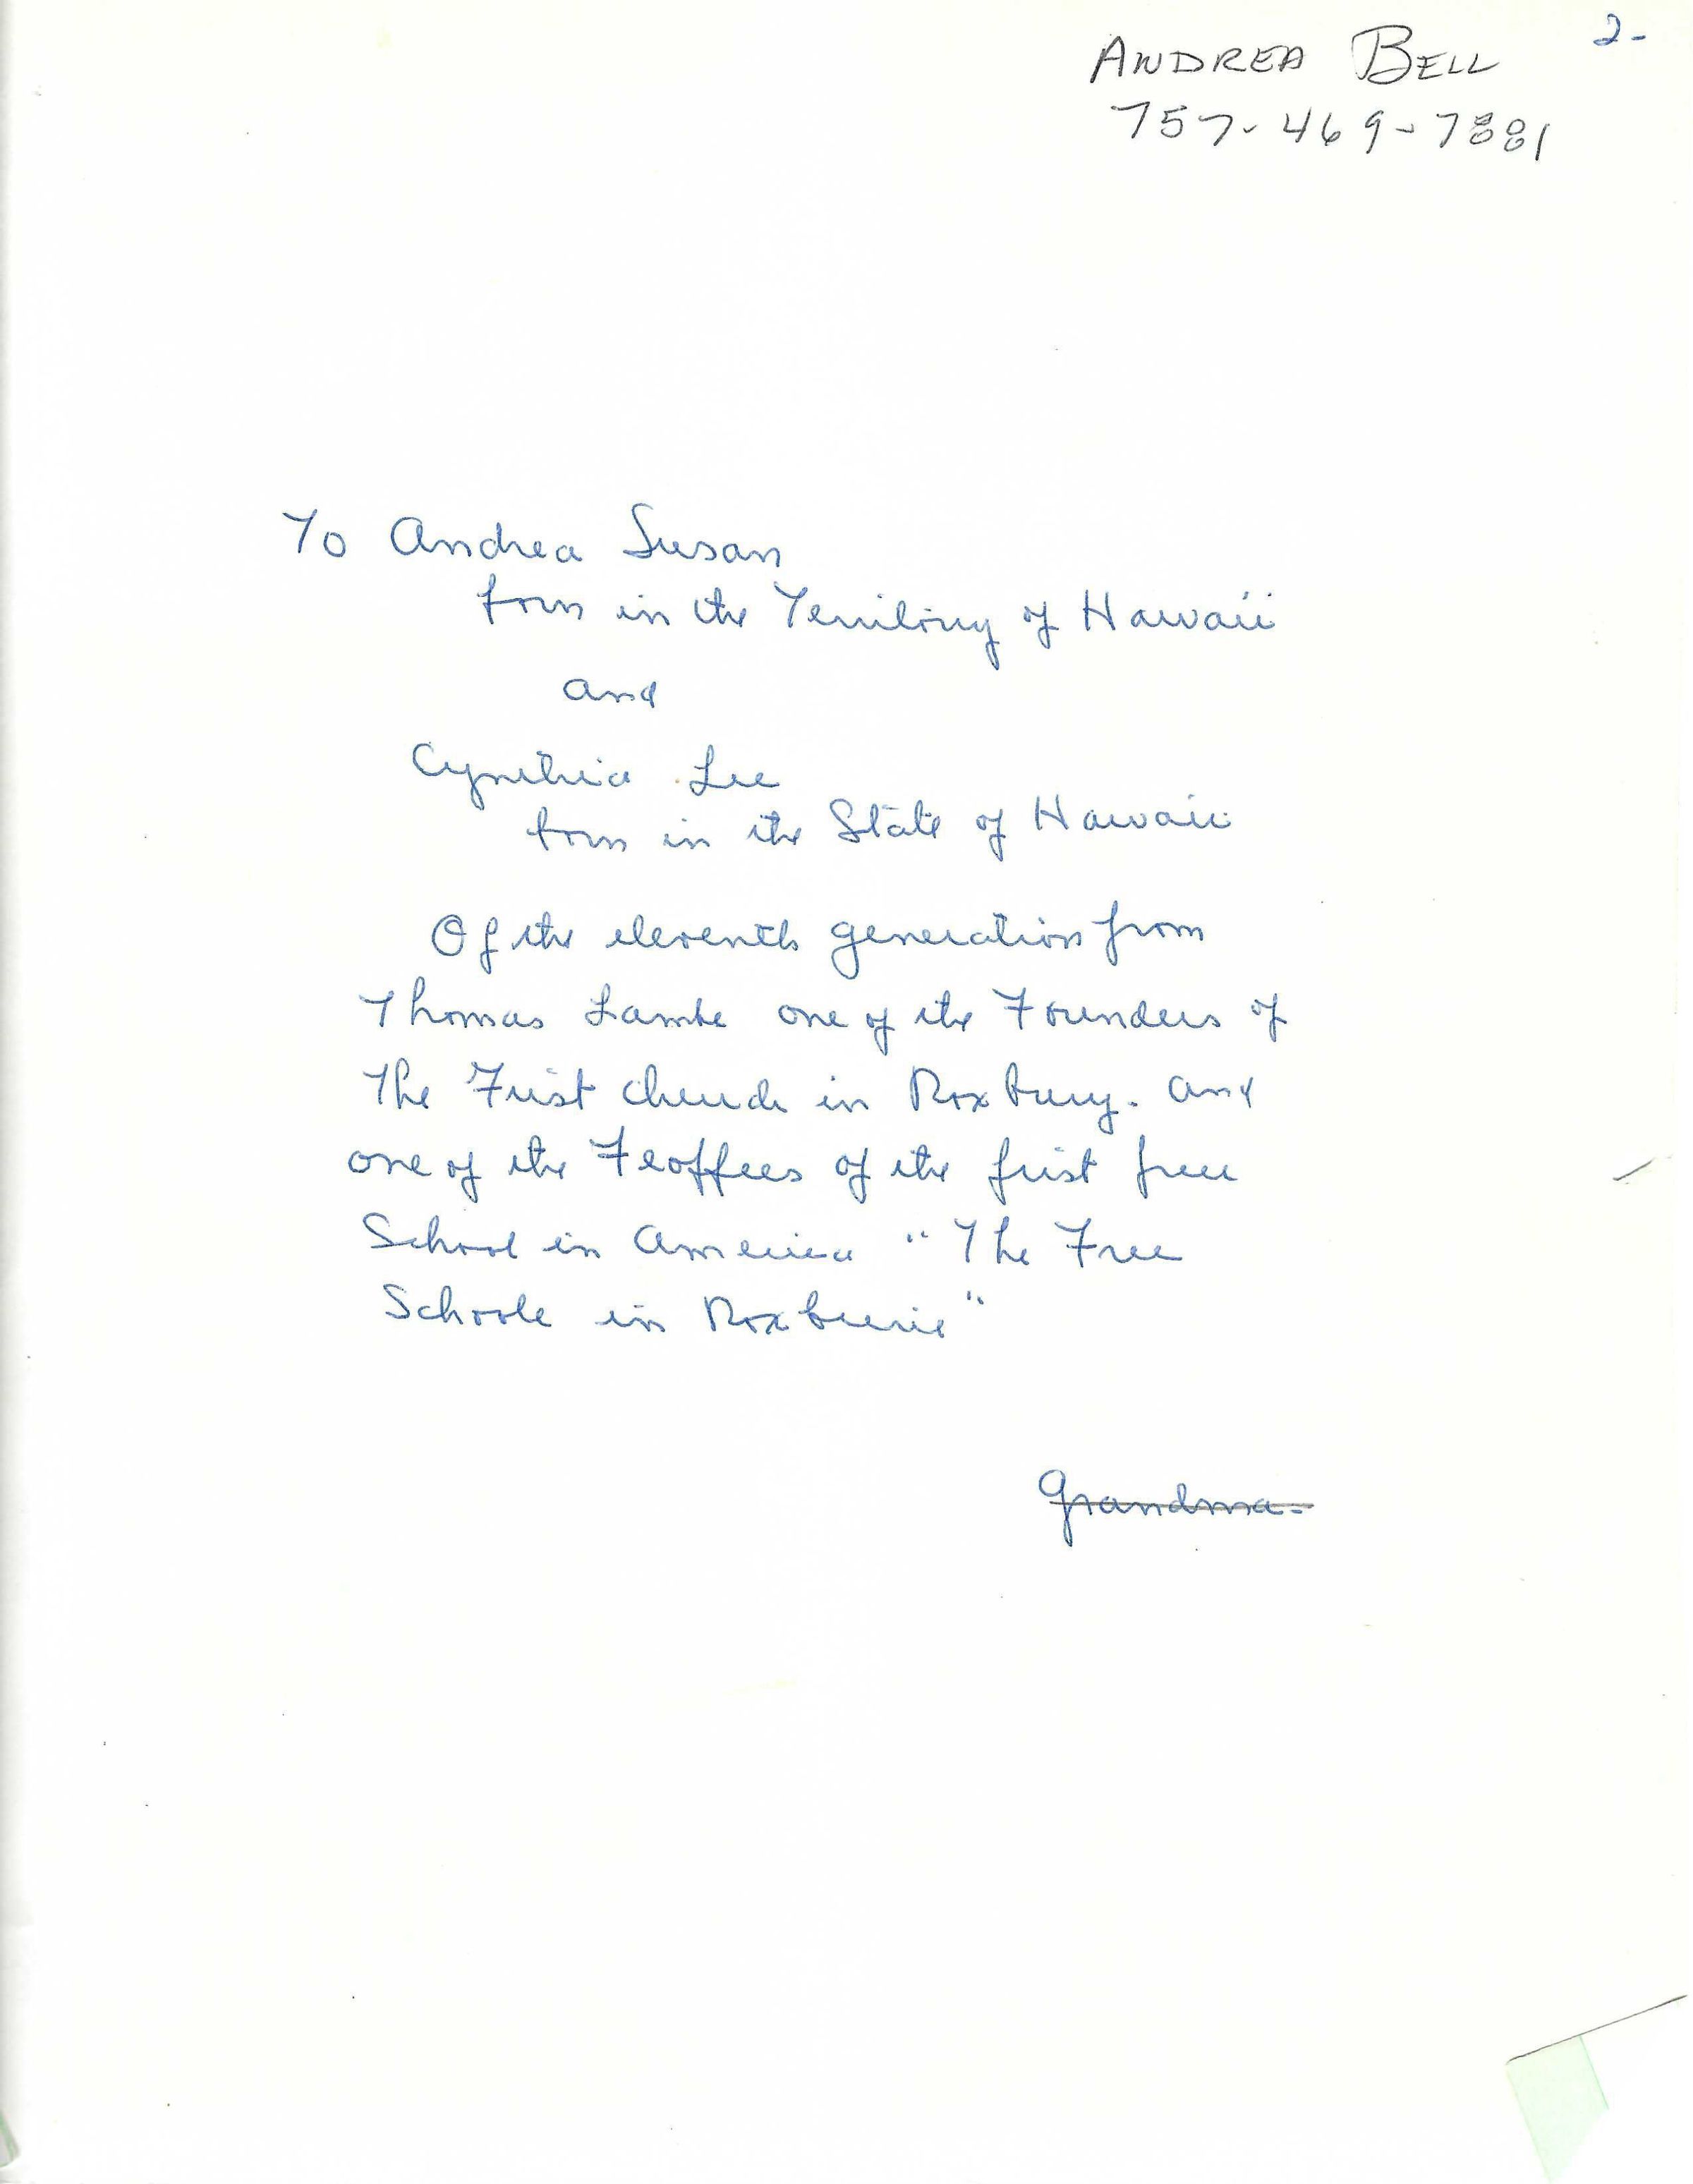 2-
ANDREA BELL
757-469-7881
To Andrea Susan
born in the Territory of Hawaii
and
Cynthia Lee
born in the State of Hawaii
Of the eleventh generation from
Thomas Lambe one of the Founders of
The First Church in Roxbury. and
one of the Feoffees of the first free
School in America "The Free
Schoole in Roxburie"
Grandma-